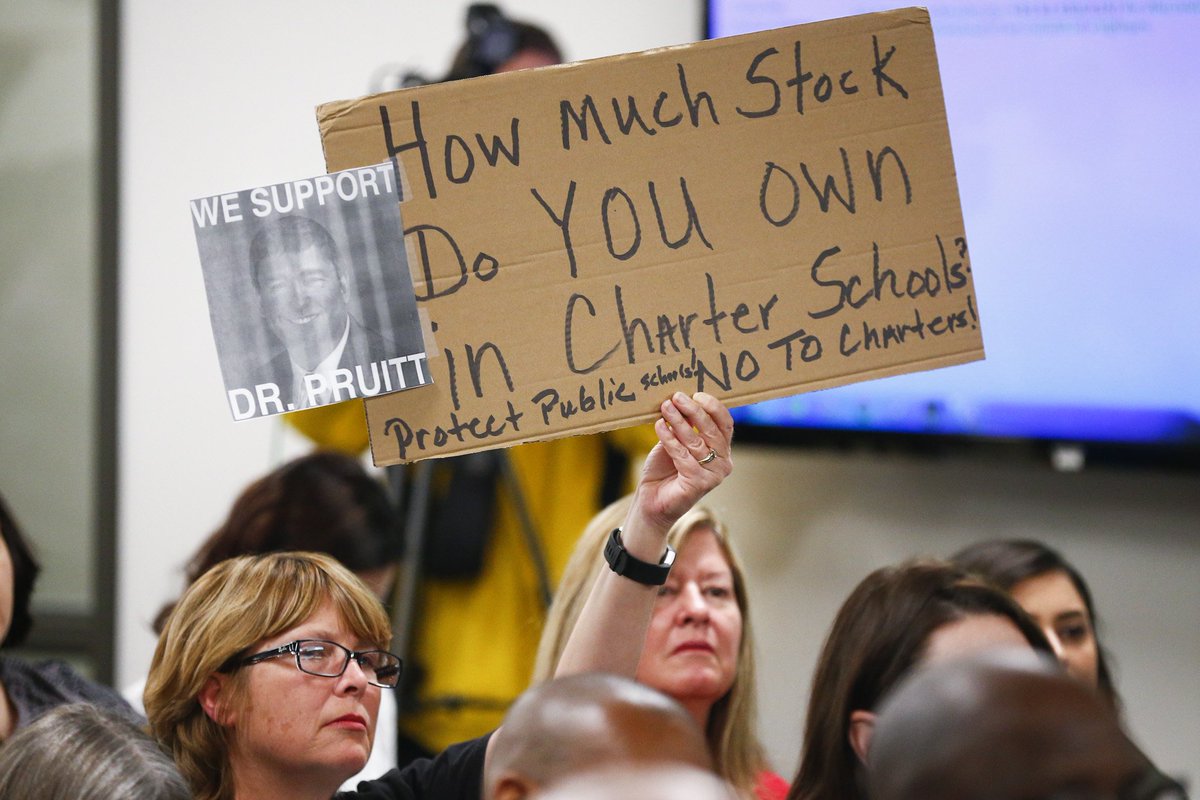 How Much Stock
Do YOU own
in Charter Schools?
Protect Public schools! NO TO CHArters!
WE SUPPORT
DR. PRUITT